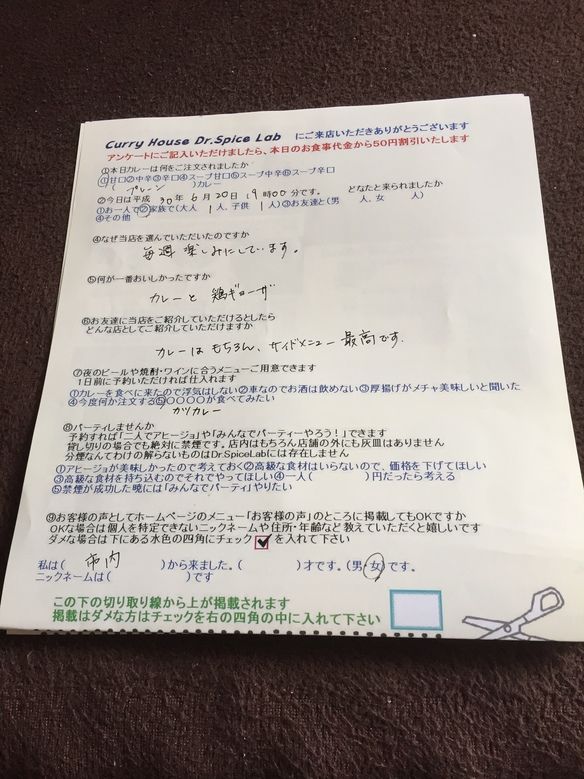 Curry House Dr.Spice Lab にご来店いただきありがとうございます
アンケートにご記入いただけましたら、本日のお食事代金から50円割引いたします
①本日カレーは何をご注文されましたか
①甘口②中辛③辛口④スープ甘口⑤スープ中辛⑥スープ辛口
( プレーン )カレー
②今日は平成 30年 6月 20日 19時00分です。 どなたと来られましたか
①お一人で②家族で(大人 1人、子供 1人)③お友達と(男 人、女 人)
④その他
④なぜ当店を選んでいただいたのですか
毎週楽しみにしています。
⑤何が一番おいしかったですか
カレーと鶏ギョーザ
⑥お友達に当店をご紹介していただけるとしたら
どんな店としてご紹介していただけますか
カレーはもちろん、サイドメニュー最高です.
⑦夜のビールや焼酎・ワインに合うメニューご用意できます
1日前に予約いただければ仕入れます
①カレーを食べに来たので浮気はしない②車なのでお酒は飲めない③厚揚げがメチャ美味しいと聞いた
④今度何か注文する⑤〇〇〇〇が食べてみたい
カツカレー
⑧パーティしませんか
予約すれば「二人でアヒージョ」や「みんなでパーティーやろう!」できます
貸し切りの場合でも絶対に禁煙です。店内はもちろん店舗の外にも灰皿はありません
分煙なんてわけの解らないものはDr.SpiceLabには存在しません
①アヒージョが美味しかったので考えておく②高級な食材はいらないので、価格を下げてほしい
③高級な食材を持ち込むのでそれでやってほしい④一人( )円だったら考える
⑤禁煙が成功した暁には「みんなでパーティ」やりたい
⑨お客様の声としてホームページのメニュー「お客様の声」のところに掲載してもOKですか
OKな場合は個人を特定できないニックネームや住所・年齢など教えていただくと嬉しいです
ダメな場合は下にある水色の四角にチェック を入れて下さい
私は( 市内 )から来ました。( )才です。(男・女)です。
ニックネームは( )です
この下の切り取り線から上が掲載されます
掲載はダメな方はチェックを右の四角の中に入れて下さい